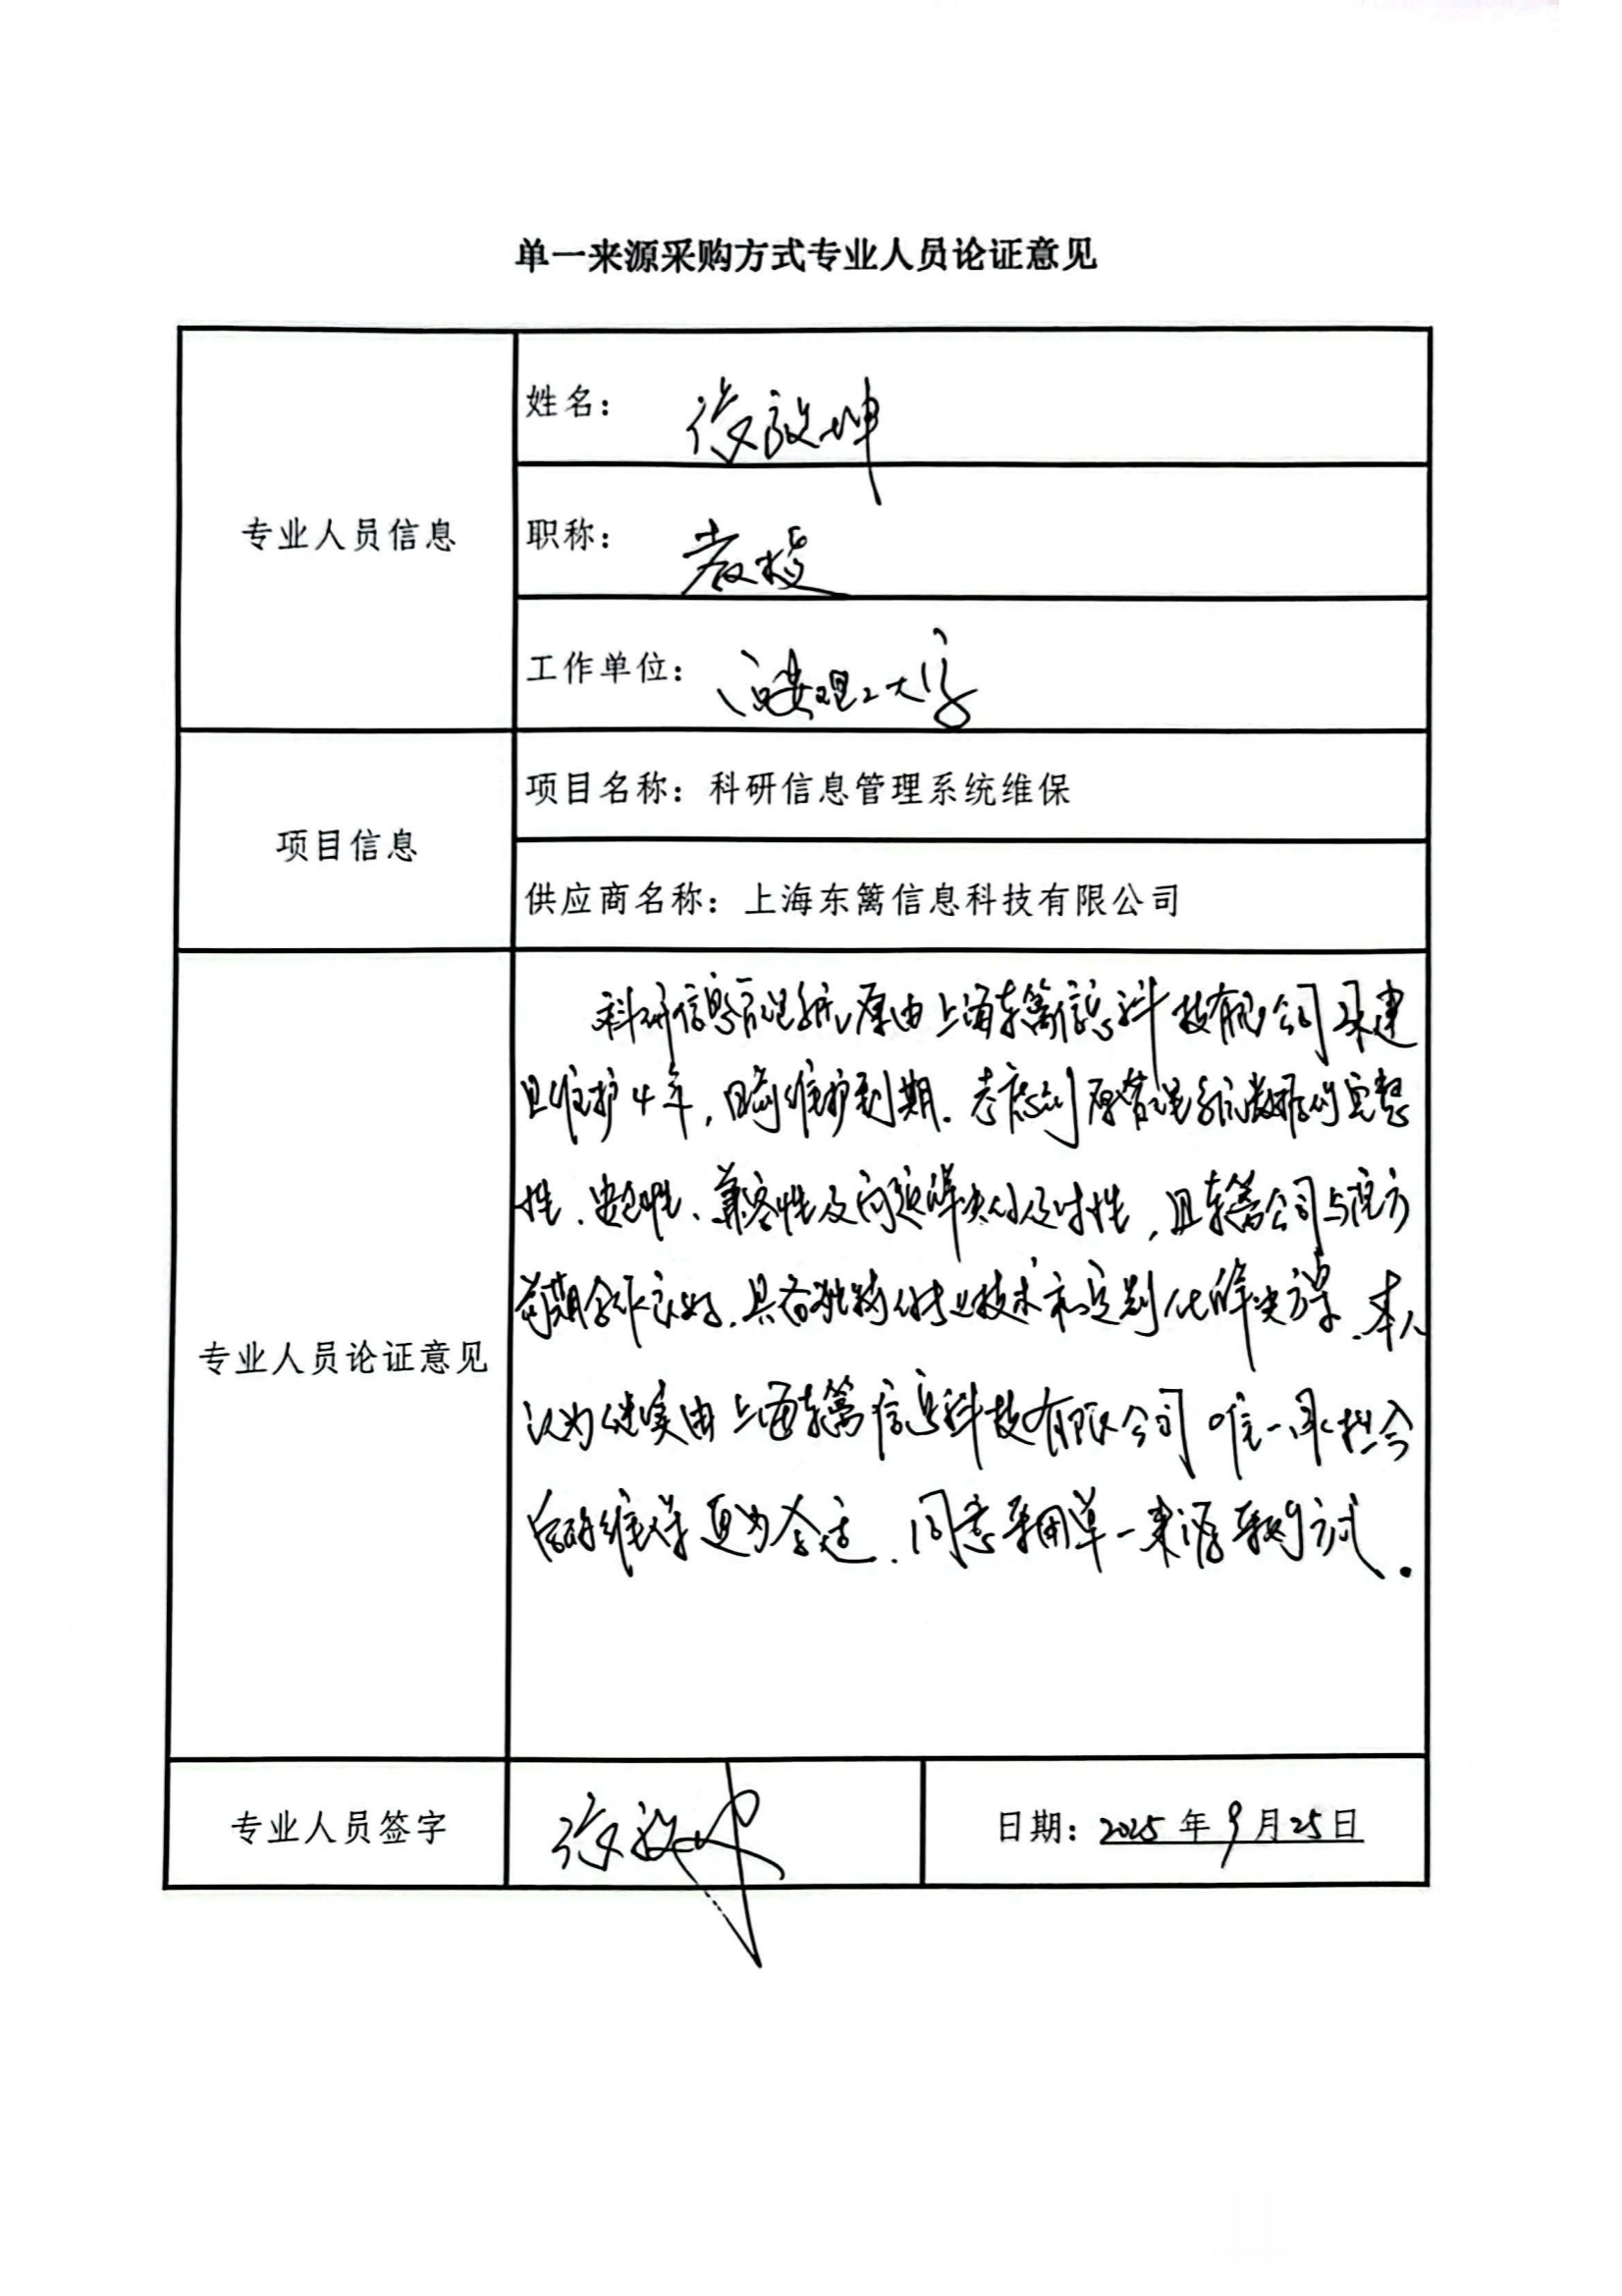 单一来源采购方式专业人员论证意见
专业人员信息
姓名： 徐敬坤
职称： 教授
工作单位： 西安理工大学
项目信息
项目名称：科研信息管理系统维保
供应商名称：上海东篱信息科技有限公司
专业人员论证意见
科研信息管理系统原由上海东篱信息科技有限公司承建
且维护4年，目前维护到期。考虑到原管理系统数据的完整
性、安全性、兼容性及问题解决的及时性，且东篱公司与院方
前期合作良好，具备独特的专业技术和定制化解决方案。本人
认为继续由上海东篱信息科技有限公司唯一承担
维护更为合适，同意采用单一来源采购方式。
专业人员签字
日期：2025年9月25日